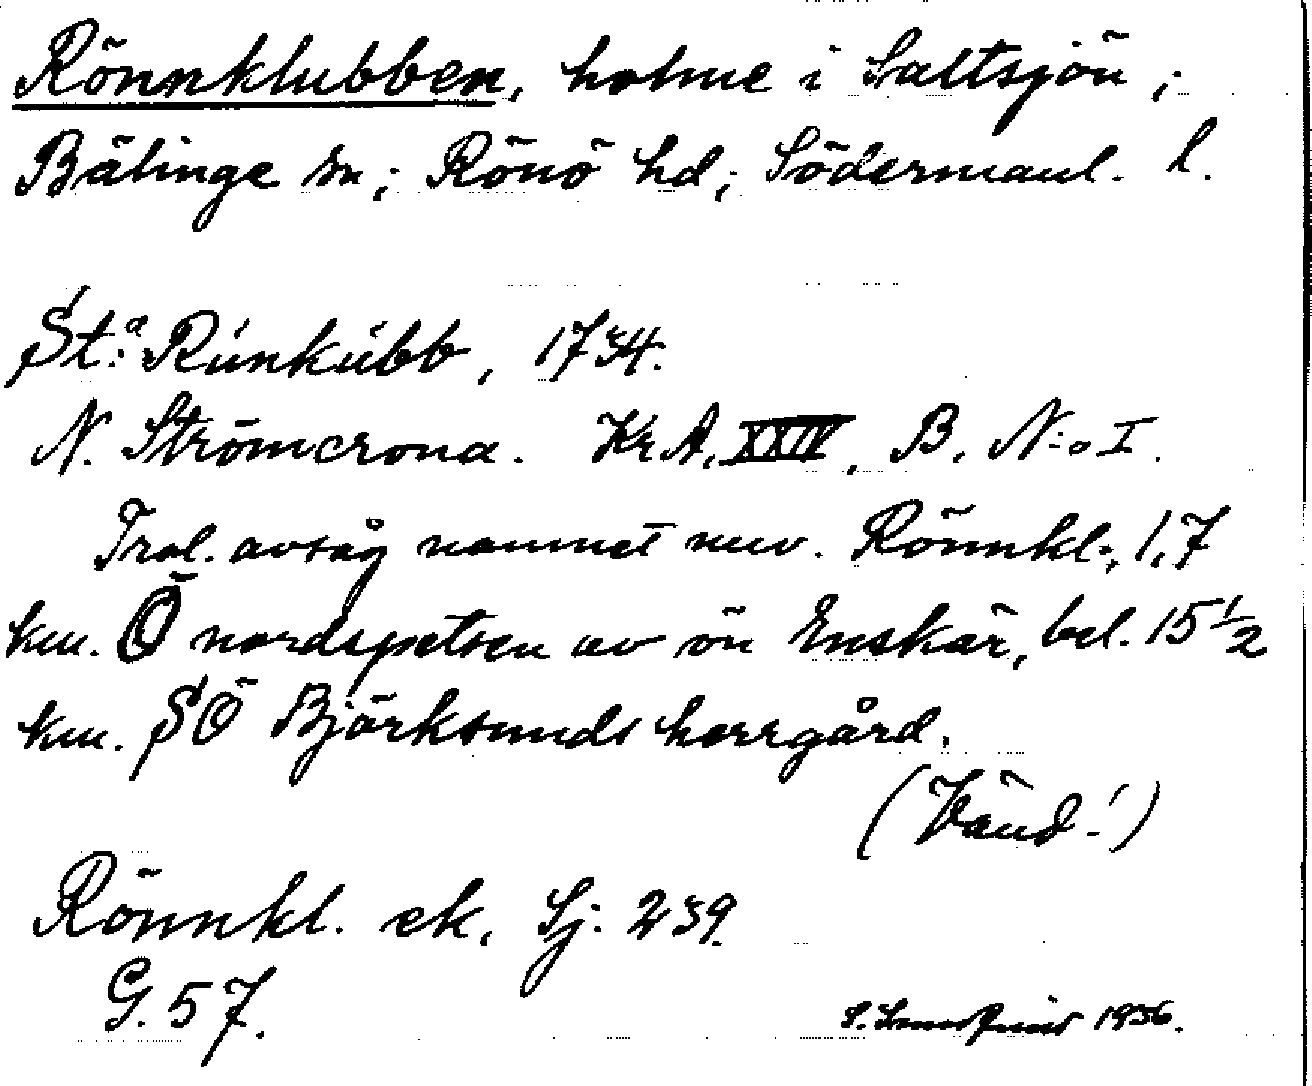 Rönnklubben, holme i Saltsjön;
Bälinge sn; Rönö hd; Södermanl. l.
St:a Rúnkúbb, 1734.
N. Strömcrona. Kr.A. XXIV, B. N:o I.
Trol. avsåg namnet nuv. Rönnkl., 1,7
km. Ö nordspetsen av ön Enskär, bel. 15 1/2
km. SÖ Björksunds herrgård.
(Vänd!)
Rönnkl. ek. Sj. 239.
G. 57.
S. 1936.